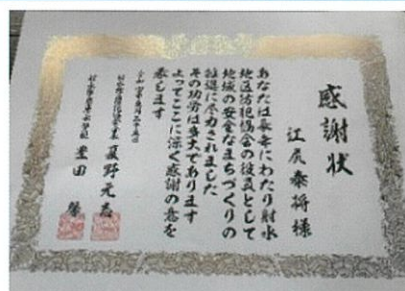 感謝状
江尻泰将様
あなたは長年にわたり射水
地区防犯協会の役員として
地域の安全なまちづくりの
推進に尽力されました
その功労は多大であります
よってここに深く感謝の意を
表します
夏野元志
豊田